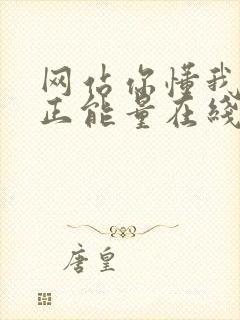 网站你懂我
正能量在线
唐皇